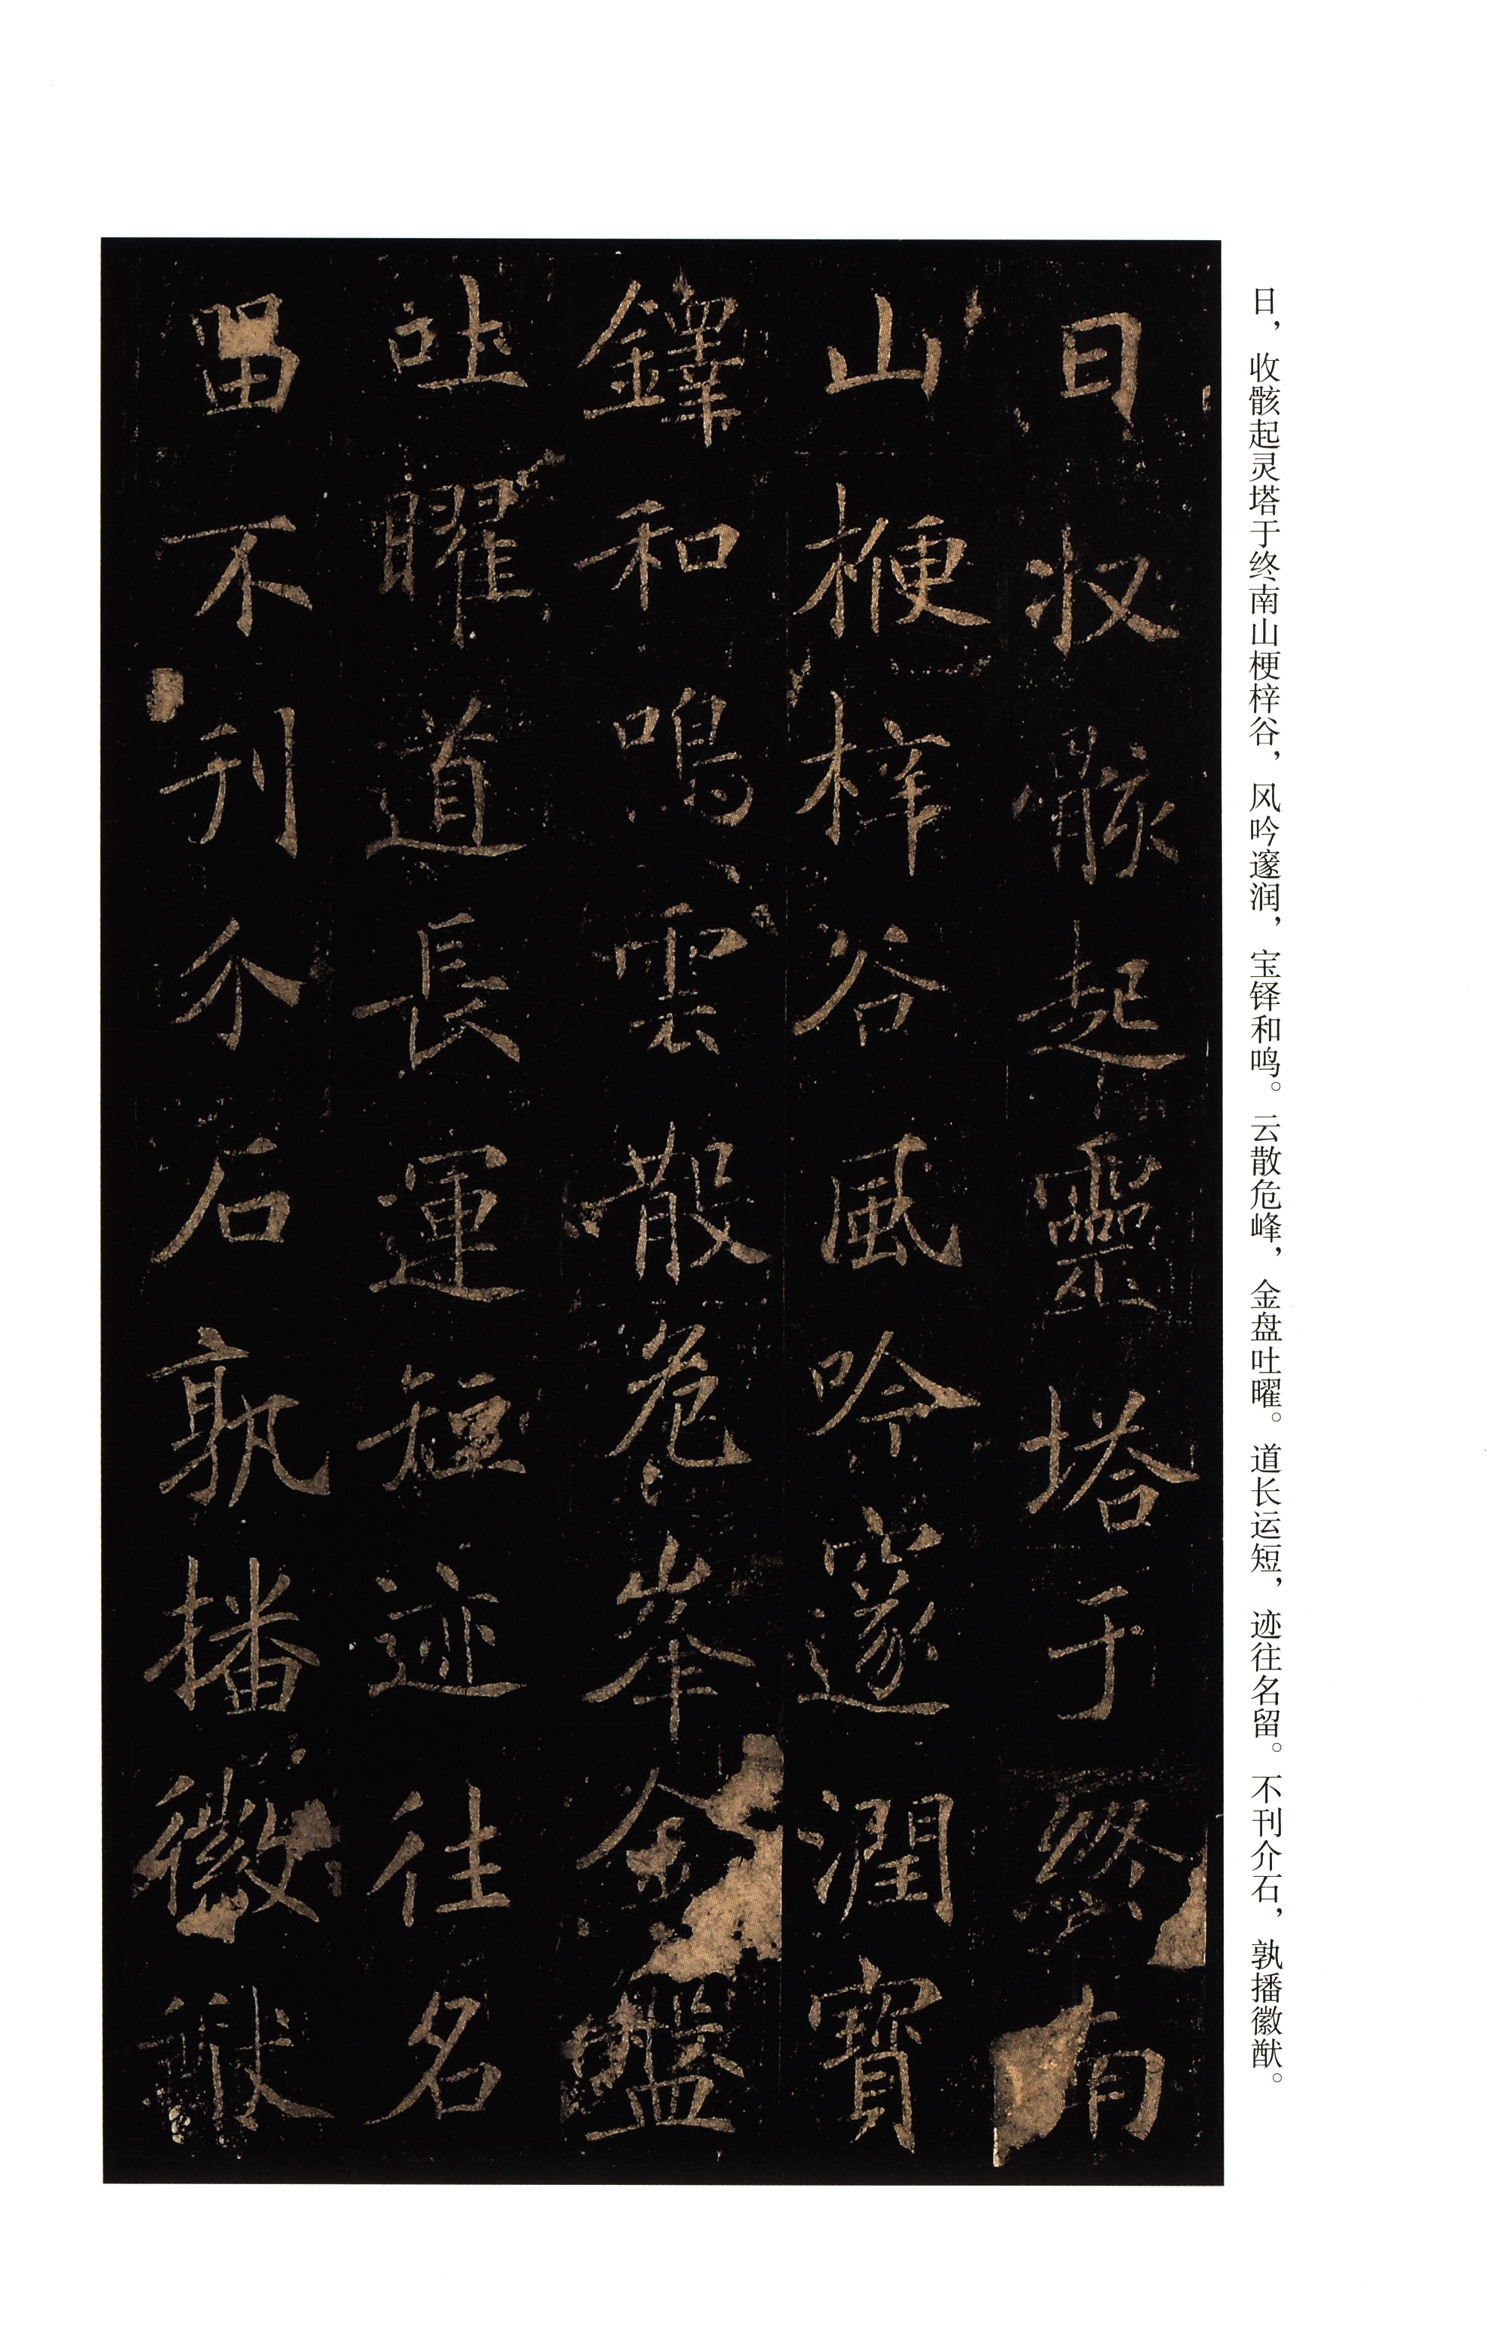 日，收骸起灵塔于终南山梗梓谷，风吟邃润，宝铎和鸣。云散危峰，金盘吐曜。道长运短，迹往名留。不刊介石，孰播徽猷。
日收骸起靈塔于终南
山梗梓谷風吟邃潤寶
鐸和鳴雲散危峯金盤
吐曜道長運短迹往名
留不刊介石孰播徽猷